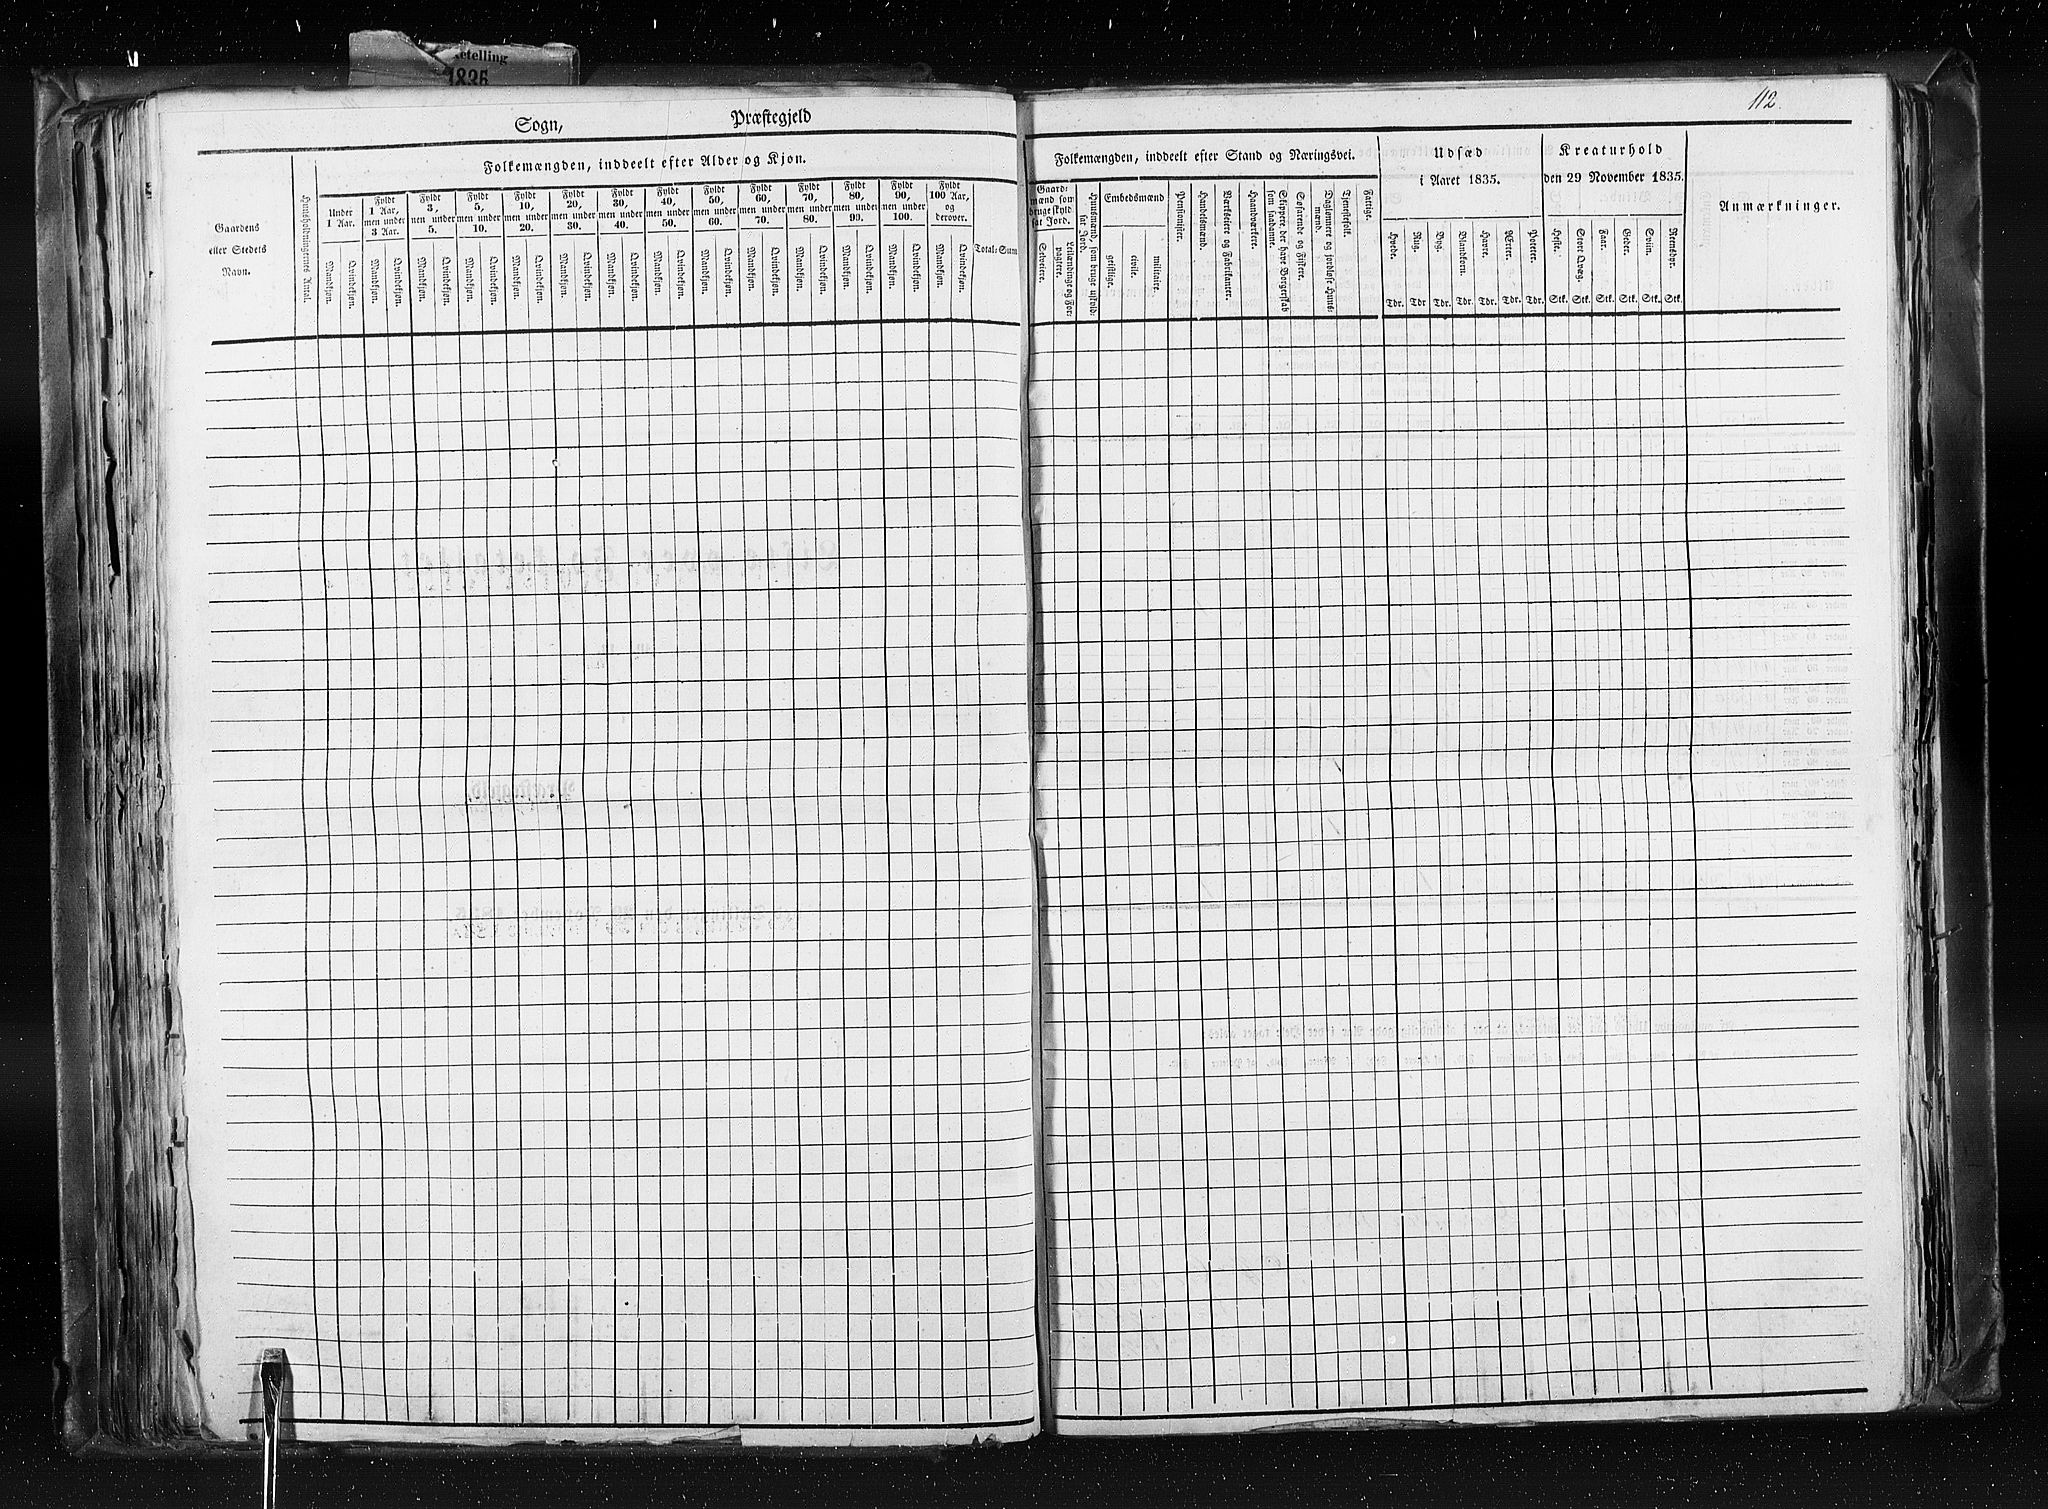 ketelling
1835
112.
Sogn, Præstegjeld
Gaardens eller Stedets Navn.
Huusholdningernes Antal.
Folkemængden, inddeelt efter Alder og Kjøn.
Under 1 Aar.
Fyldt 1 Aar, men under 3 Aar.
Fyldt 3, men under 5.
Fyldt 5, men under 10.
Fyldt 10, men under 20.
Fyldt 20, men under 30.
Fyldt 30, men under 40.
Fyldt 40, men under 50.
Fyldt 50, men under 60.
Fyldt 60, men under 70.
Fyldt 70, men under 80.
Fyldt 80, men under 90.
Fyldt 90, men under 100.
Fyldt 100 Aar, og derover.
Mandkjøn. Qvindekjøn. Mandkjøn. Qvindekjøn. Mandkjøn. Qvindekjøn. Mandkjøn. Qvindekjøn. Mandkjøn. Qvindekjøn. Mandkjøn. Qvindekjøn. Mandkjøn. Qvindekjøn. Mandkjøn. Qvindekjøn. Mandkjøn. Qvindekjøn. Mandkjøn. Qvindekjøn. Mandkjøn. Qvindekjøn. Mandkjøn. Qvindekjøn. Mandkjøn. Qvindekjøn. Mandkjøn. Qvindekjøn.
Total-Sum
Folkemængden, inddeelt efter Stand og Næringsvei.
Gaardmænd som bruge skyldsat Jord.
Selveiere.
Leilændinge og Forpagtere.
Huusmænd, som bruge uskyldsat Jord.
Embedsmænd
geistlige.
civile.
militaire.
Pensionister.
Handelsmænd.
Værkseiere og Fabrikanter.
Haandværkere.
Skippere, der have Borgerskab som saadanne.
Søfarende og Fiskere.
Daglønnere og jordløse Huusmænd.
Tjenestefolk.
Fattige.
Udsæd
i Aaret 1835.
Hvede. Rug. Byg. Blandkorn. Havre. Erter. Poteter.
Tdr. Tdr Tdr. Tdr. Tdr. Tdr. Tdr.
Kreaturhold
den 29 November 1835.
Heste. Stort Qvæg. Faar. Geder. Sviin. Reensdyr.
Stk. Stk. Stk. Stk. Stk. Stk.
Anmærkninger.